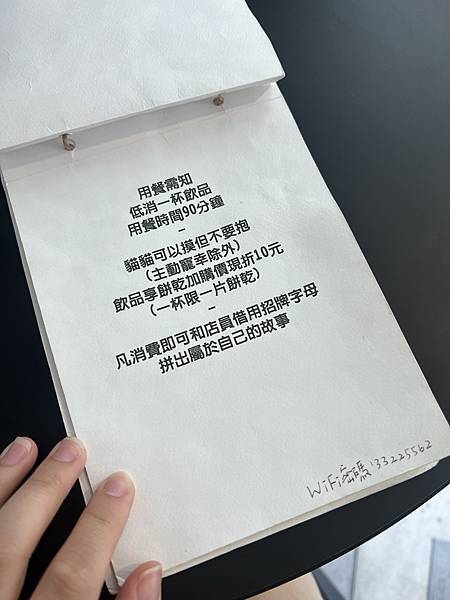 用餐需知
低消一杯飲品
用餐時間90分鐘
-
貓貓可以摸但不要抱
(主動寵幸除外)
飲品享餅乾加購價現折10元
(一杯限一片餅乾)
-
凡消費即可和店員借用招牌字母
拼出屬於自己的故事
WiFi密碼:33225562